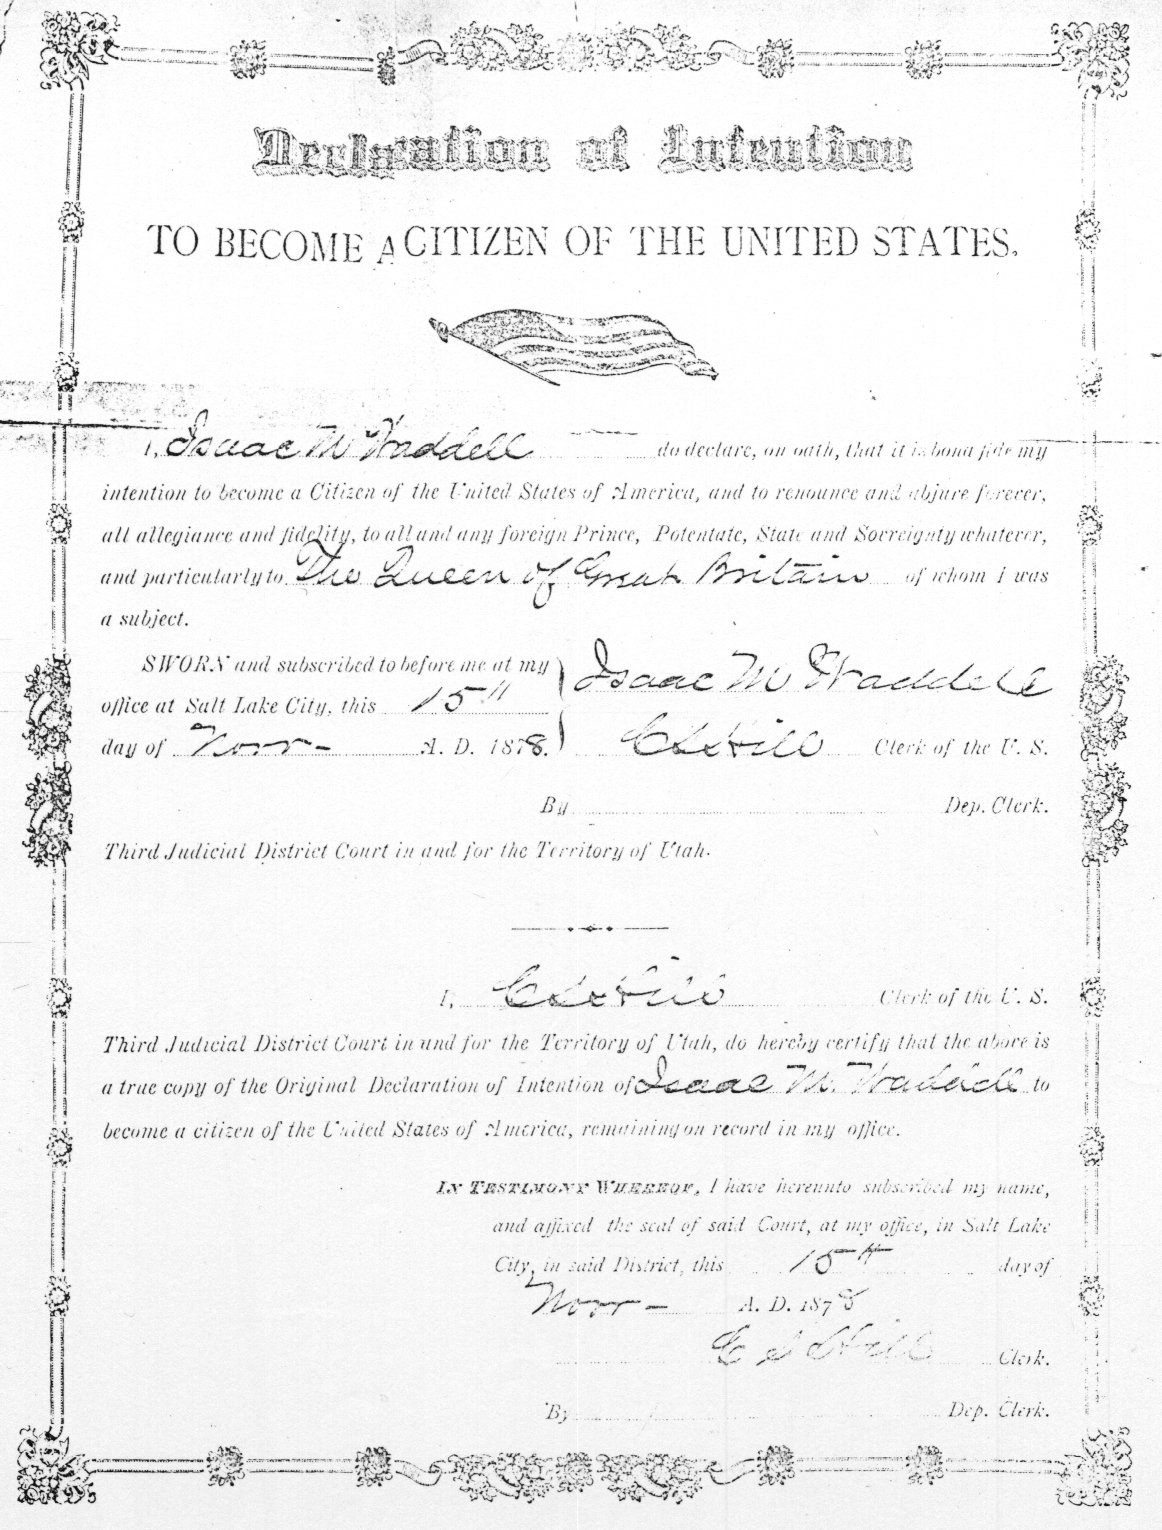 Declaration of Intention
TO BECOME A CITIZEN OF THE UNITED STATES.
I, Isaac M Waddell do declare, on oath, that it is bona fide my
intention to become a Citizen of the United States of America, and to renounce and abjure forever,
all allegiance and fidelity, to all and any foreign Prince, Potentate, State and Soereignty whatever,
and particularly to The Queen of Great Britain of whom I was
a subject.
SWORN and subscribed to before me at my
office at Salt Lake City, this 15th
day of Novr - A. D. 1878.
Isaac M Waddell
C S Hill Clerk of the U. S.
By Dep. Clerk.
Third Judicial District Court in and for the Territory of Utah.
I, C S Hill Clerk of the U. S.
Third Judicial District Court in and for the Territory of Utah, do hereby certify that the above is
a true copy of the Original Declaration of Intention of Isaac M. Waddell to
become a citizen of the United States of America, remaining on record in my office.
IN TESTIMONY WHEREOF, I have hereunto subscribed my name,
and affixed the seal of said Court, at my office, in Salt Lake
City, in said District, this 15th day of
Novr - A. D. 1878
C S Hill Clerk.
By Dep. Clerk.